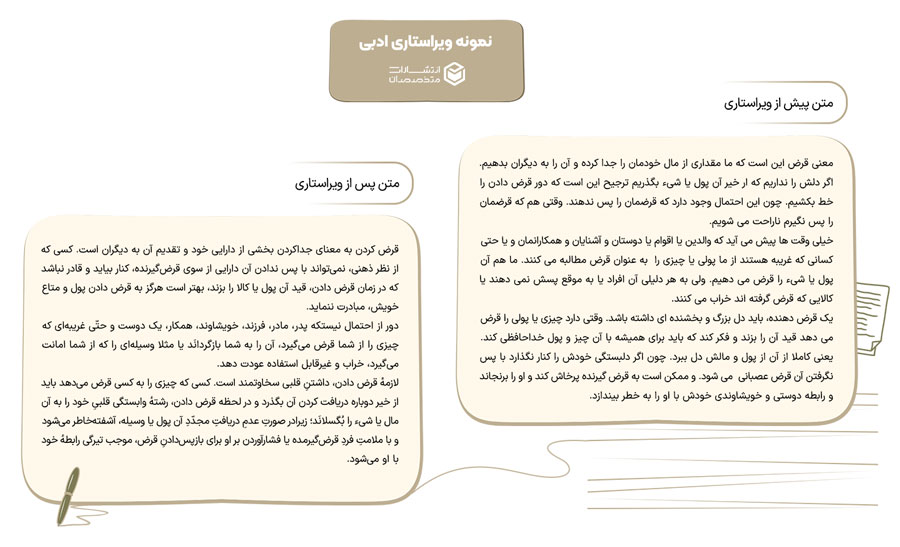 نمونه ویراستاری ادبی
انتشارات
متخصصان
متن پیش از ویراستاری
معنی قرض این است که ما مقداری از مال خودمان را جدا کرده و آن را به دیگران بدهیم.
اگر دلش را نداریم که ار خیر آن پول یا شیء بگذریم ترجیح این است که دور قرض دادن را
خط بکشیم. چون این احتمال وجود دارد که قرضمان را پس ندهند. وقتی هم که قرضمان
را پس نگیرم ناراحت می شویم.
خیلی وقت ها پیش می آید که والدین یا اقوام یا دوستان و آشنایان و همکارانمان و یا حتی
کسانی که غریبه هستند از ما پولی یا چیزی را به عنوان قرض مطالبه می کنند. ما هم آن
پول یا شیء را قرض می دهیم. ولی به هر دلیلی آن افراد یا به موقع پسش نمی دهند یا
کالایی که قرض گرفته اند خراب می کنند.
یک قرض دهنده، باید دل بزرگ و بخشنده ای داشته باشد. وقتی دارد چیزی یا پولی را قرض
می دهد قید آن را بزند و فکر کند که باید برای همیشه با آن چیز و پول خداحافظی کند.
یعنی کاملا از آن از پول و مالش دل ببرد. چون اگر دلبستگی خودش را کنار نگذارد با پس
نگرفتن آن قرض عصبانی می شود. و ممکن است به قرض گیرنده پرخاش کند و او را برنجاند
و رابطه دوستی و خویشاوندی خودش با او را به خطر بیندازد.
متن پس از ویراستاری
قرض کردن به معنای جداکردن بخشی از دارایی خود و تقدیم آن به دیگران است. کسی که
از نظر ذهنی، نمی‌تواند با پس ندادن آن دارایی از سوی قرض‌گیرنده، کنار بیاید و قادر نباشد
که در زمان قرض دادن، قید آن پول یا کالا را بزند، بهتر است هرگز به قرض دادن پول و متاع
خویش، مبادرت ننماید.
دور از احتمال نیستکه پدر، مادر، فرزند، خویشاوند، همکار، یک دوست و حتّی غریبه‌ای که
چیزی را از شما قرض می‌گیرد، آن را به شما بازگردانَد یا مثلا وسیله‌ای را که از شما امانت
می‌گیرد، خراب و غیرقابل استفاده عودت دهد.
لازمهٔ قرض دادن، داشتنِ قلبی سخاوتمند است. کسی که چیزی را به کسی قرض می‌دهد باید
از خیر دوباره دریافت کردن آن بگذرد و در لحظه قرض دادن، رشتهٔ وابستگی قلبیِ خود را به آن
مال یا شیء را بُگسلاند؛ زیرادر صورتِ عدمِ دریافتِ مجدّدِ آن پول یا وسیله، آشفته‌خاطر می‌شود
و با ملامتِ فردِ قرض‌گیرمده یا فشارآوردن بر او برای بازپس‌دادنِ قرض، موجب تیرگی رابطهٔ خود
با او می‌شود.